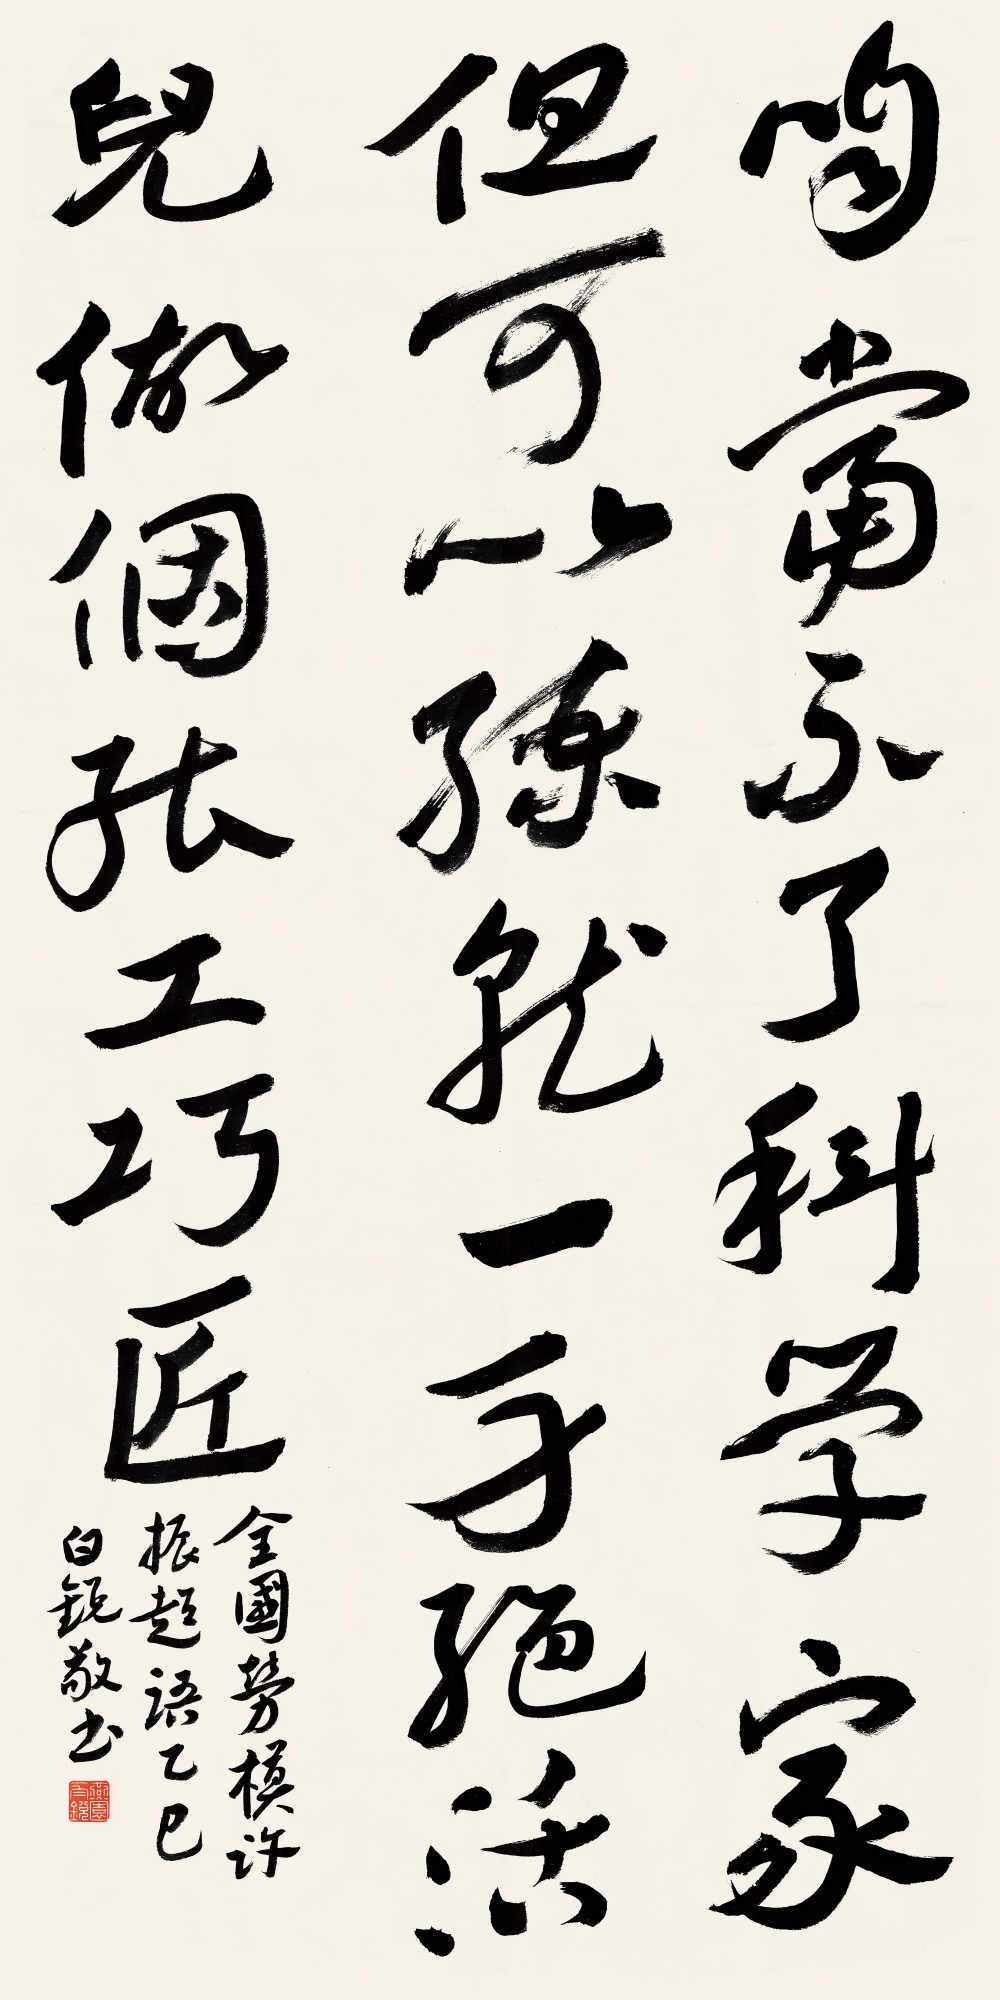 咱當不了科学家
但可以練就一身絕活
兒做個能工巧匠
全國勞模許
振超語乙巳
白銳敬书